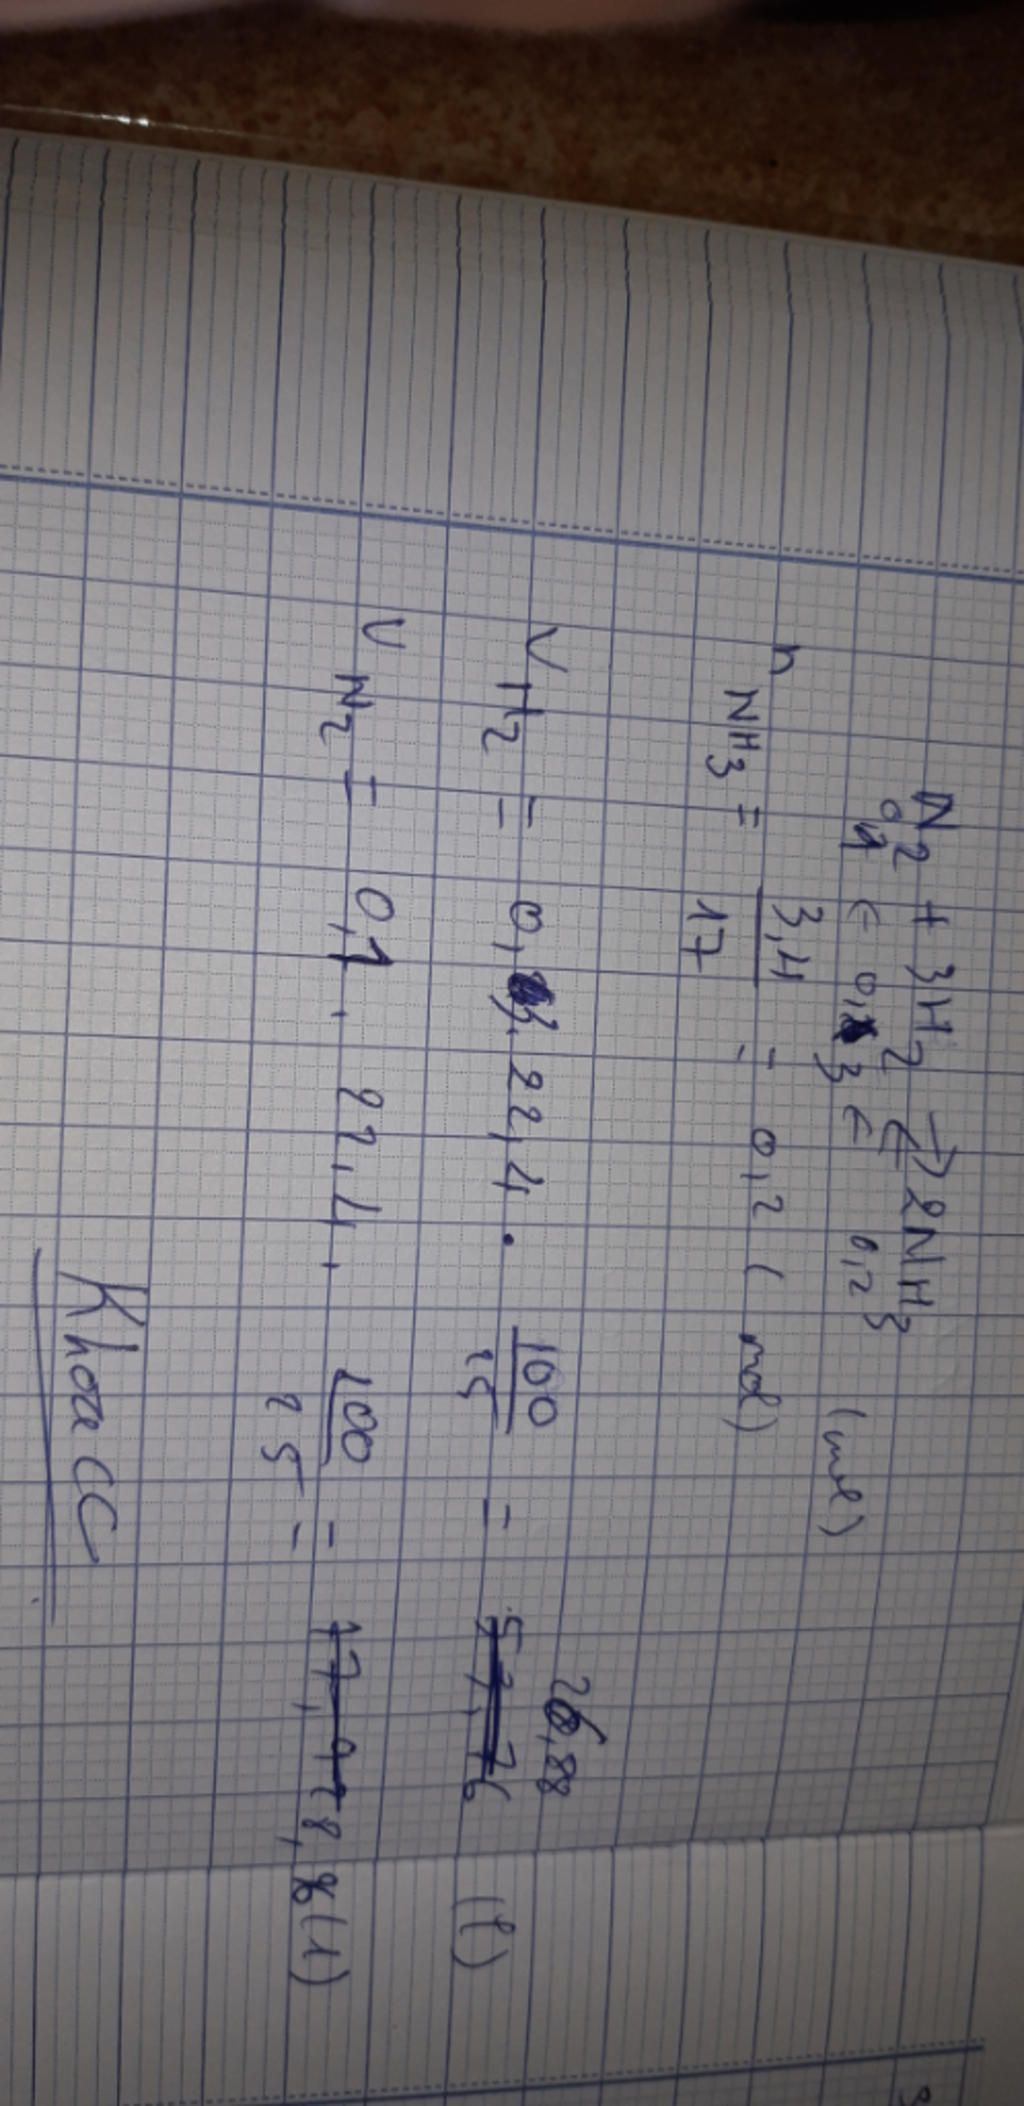 N2 + 3H2 ⇄ 2NH3
0,1 ← 0,3 ← 0,2 (mol)
nNH3 = 3,4/17 = 0,2 (mol)
VH2 = 0,3. 22,4 . 100/25 = 26,88 (l)
VN2 = 0,1 . 22,4 . 100/25 = 8,96 (l)
Khoa CC